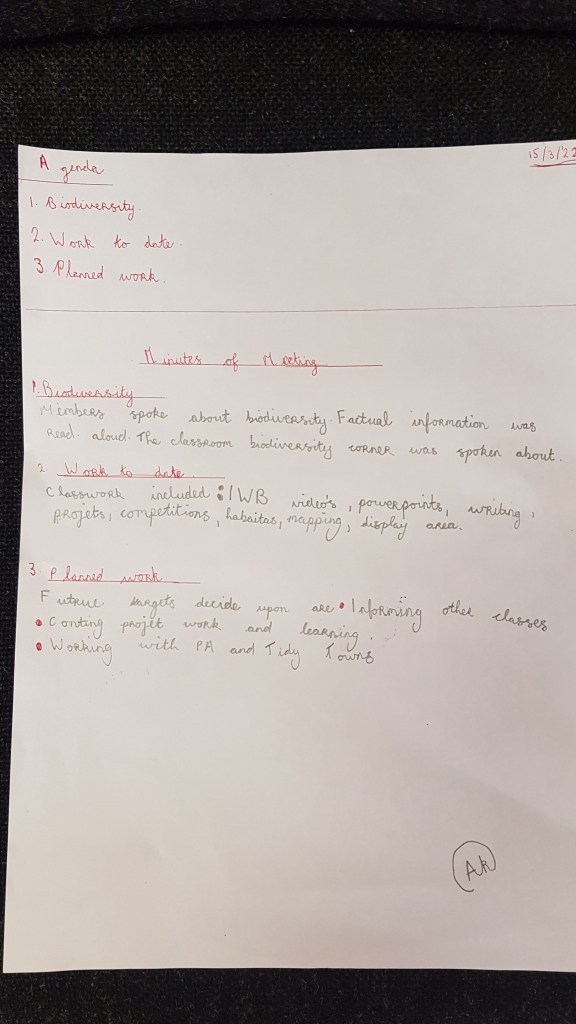 15/3/22
Agenda
1. Biodiversity.
2. Work to date.
3. Planned work.
Minutes of Meeting
1. Biodiversity
Members spoke about biodiversity. Factual information was
read. aloud. The classroom biodiversity corner was spoken about.
2. Work to date.
Classwork included : IWB video's, powerpoints, writing,
projets, competitions, habaitas, mapping, display area.
3. Planned work
Futrue targets decide upon are • Informing other classes
• Conting projet work and learning.
• Working with PA and Tidy Towns
AK